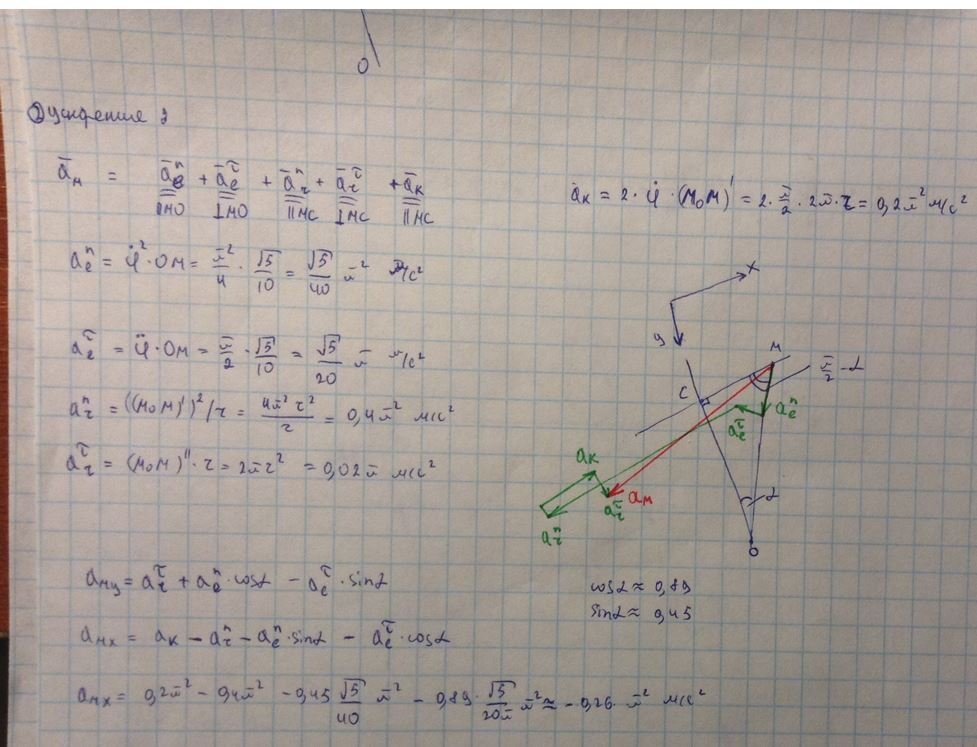 O
② Ускорение :
ā_м = ā_e^n + ā_e^τ + ā_r^n + ā_r^τ + ā_к
||МО ⊥МО ||МС ⊥МС ||МС
a_к = 2·φ̇·(М₀М)' = 2·π/2·2π·r = 0,2π² м/с²
a_e^n = φ̇²·ОМ = π²/4 · √5/10 = √5/40 π² м/с²
a_e^τ = φ̈·ОМ = π/2 · √5/10 = √5/20 π м/с²
a_r^n = ((М₀М)')²/r = 4π²r²/r = 0,4π² м/с²
a_r^τ = (М₀М)''·r = 2πr² = 0,02π м/с²
x
y
М
C
π/2 - α
a_e^n
a_e^τ
a_к
a_м
a_r^τ
a_r^n
α
O
a_мy = a_r^τ + a_e^n·cosα - a_e^τ·sinα
cosα ≈ 0,89
sinα ≈ 0,45
a_мx = a_к - a_r^n - a_e^n·sinα - a_e^τ·cosα
a_мx = 0,2π² - 0,4π² - 0,45 √5/40 π² - 0,89·√5/20π π² ≈ -0,26·π² м/с²